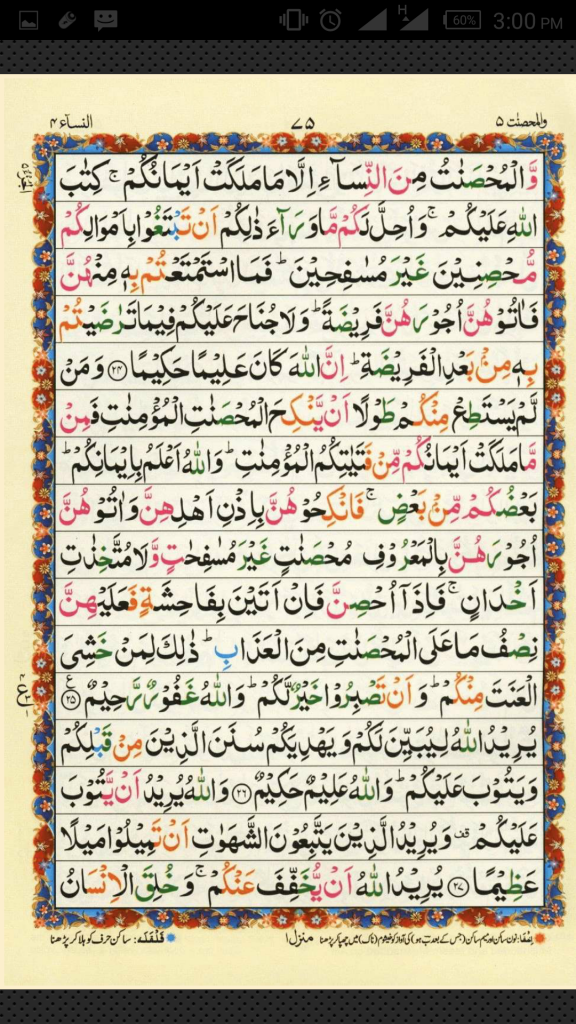 3:00 PM
60%
H
والمحصنٰت ۵
۷۵
النسآء ۴
وَّالْمُحْصَنٰتُ مِنَ النِّسَآءِ اِلَّا مَا مَلَكَتْ اَیْمَانُكُمْ ۚ كِتٰبَ
اللّٰهِ عَلَیْكُمْ ۚ وَ اُحِلَّ لَكُمْ مَّا وَرَآءَ ذٰلِكُمْ اَنْ تَبْتَغُوْا بِاَمْوَالِكُمْ
مُّحْصِنِیْنَ غَیْرَ مُسٰفِحِیْنَ ؕ فَمَا اسْتَمْتَعْتُمْ بِهٖ مِنْهُنَّ
فَاٰتُوْهُنَّ اُجُوْرَهُنَّ فَرِیْضَةً ؕ وَلَا جُنَاحَ عَلَیْكُمْ فِیْمَا تَرٰضَیْتُمْ
بِهٖ مِنْۢ بَعْدِ الْفَرِیْضَةِ ؕ اِنَّ اللّٰهَ كَانَ عَلِیْمًا حَكِیْمًا ۝۲۴ وَ مَنْ
لَّمْ یَسْتَطِعْ مِنْكُمْ طَوْلًا اَنْ یَّنْكِحَ الْمُحْصَنٰتِ الْمُؤْمِنٰتِ فَمِنْ
مَّا مَلَكَتْ اَیْمَانُكُمْ مِّنْ فَتَیٰتِكُمُ الْمُؤْمِنٰتِ ؕ وَاللّٰهُ اَعْلَمُ بِاِیْمَانِكُمْ ؕ
بَعْضُكُمْ مِّنْۢ بَعْضٍ ۚ فَانْكِحُوْهُنَّ بِاِذْنِ اَهْلِهِنَّ وَاٰتُوْهُنَّ
اُجُوْرَهُنَّ بِالْمَعْرُوْفِ مُحْصَنٰتٍ غَیْرَ مُسٰفِحٰتٍ وَّلَا مُتَّخِذٰتِ
اَخْدَانٍ ۚ فَاِذَاۤ اُحْصِنَّ فَاِنْ اَتَیْنَ بِفَاحِشَةٍ فَعَلَیْهِنَّ
نِصْفُ مَا عَلَی الْمُحْصَنٰتِ مِنَ الْعَذَابِ ؕ ذٰلِكَ لِمَنْ خَشِیَ
الْعَنَتَ مِنْكُمْ ؕ وَ اَنْ تَصْبِرُوْا خَیْرٌ لَّكُمْ ؕ وَاللّٰهُ غَفُوْرٌ رَّحِیْمٌ ۝۲۵
یُرِیْدُ اللّٰهُ لِیُبَیِّنَ لَكُمْ وَ یَهْدِیَكُمْ سُنَنَ الَّذِیْنَ مِنْ قَبْلِكُمْ
وَ یَتُوْبَ عَلَیْكُمْ ؕ وَاللّٰهُ عَلِیْمٌ حَكِیْمٌ ۝۲۶ وَاللّٰهُ یُرِیْدُ اَنْ یَّتُوْبَ
عَلَیْكُمْ قف وَ یُرِیْدُ الَّذِیْنَ یَتَّبِعُوْنَ الشَّهَوٰتِ اَنْ تَمِیْلُوْا مَیْلًا
عَظِیْمًا ۝۲۷ یُرِیْدُ اللّٰهُ اَنْ یُّخَفِّفَ عَنْكُمْ ۚ وَ خُلِقَ الْاِنْسَانُ
اِخفَا: نون ساکن اور میم ساکن (جس کے بعد ب ہو) کی آواز کو خیشوم (ناک) میں چھپا کر پڑھنا
منزل ۱
قَلْقَلَه: ساکن حرف کو ہلا کر پڑھنا